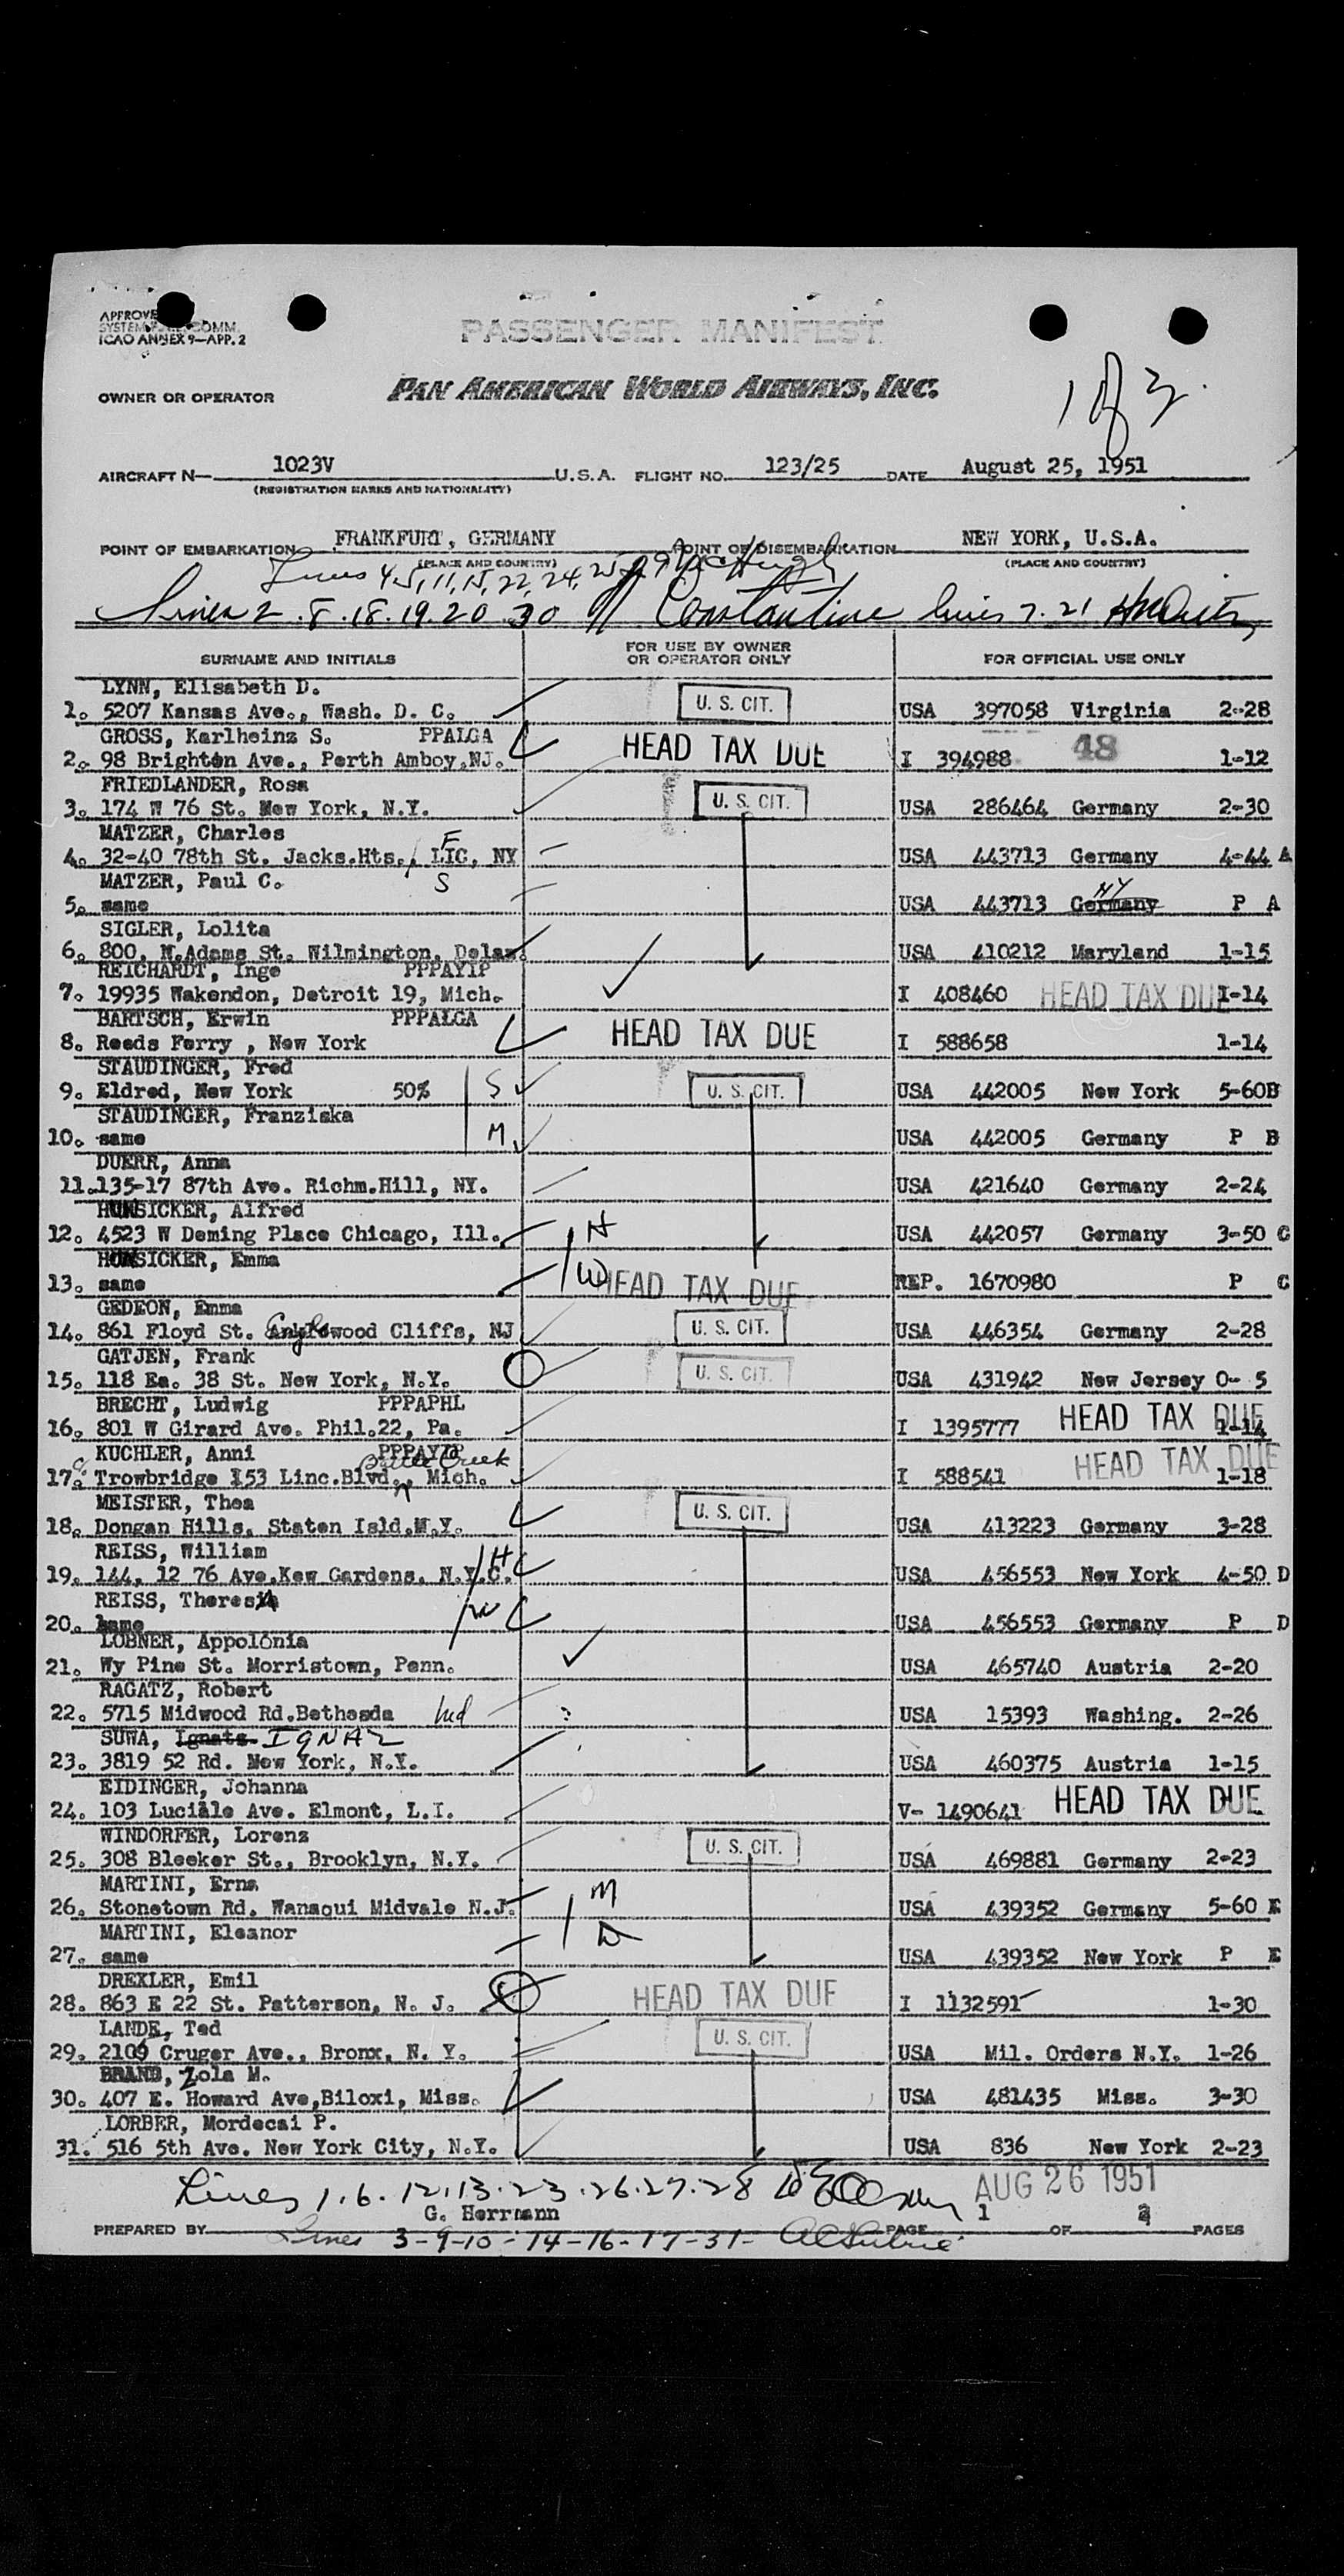 APPROVE
SYSTEM COMM.
ICAO ANNEX 9—APP. 2
PASSENGER MANIFEST
OWNER OR OPERATOR
PAN AMERICAN WORLD AIRWAYS, INC.
1 of 2
AIRCRAFT N— 1023V U.S.A. FLIGHT NO. 123/25 DATE August 25, 1951
(REGISTRATION MARKS AND NATIONALITY)
POINT OF EMBARKATION FRANKFURT, GERMANY POINT OF DISEMBARKATION NEW YORK, U.S.A.
(PLACE AND COUNTRY) (PLACE AND COUNTRY)
Lines 4, 5, 11, 15, 22, 24, 25 McHugh
Lines 2. 8. 18. 19. 20. 30 // Constantine lines 7. 21
SURNAME AND INITIALS FOR USE BY OWNER OR OPERATOR ONLY FOR OFFICIAL USE ONLY
LYNN, Elisabeth D.
1. 5207 Kansas Ave., Wash. D. C. U. S. CIT. USA 397058 Virginia 2-28
GROSS, Karlheinz S. PPALGA
2. 98 Brighton Ave., Perth Amboy,NJ. HEAD TAX DUE I 394988 48 1-12
FRIEDLANDER, Rosa
3. 174 W 76 St. New York, N.Y. U. S. CIT. USA 286464 Germany 2-30
MATZER, Charles F
4. 32-40 78th St. Jacks.Hts., LIC, NY USA 443713 Germany 4-44 A
MATZER, Paul C. S
5. same USA 443713 Germany NY P A
SIGLER, Lolita
6. 800, N.Adams St. Wilmington, Delaw. USA 410212 Maryland 1-15
REICHARDT, Inge PPPAYIP
7. 19935 Wakendon, Detroit 19, Mich. I 408460 HEAD TAX DUE 1-14
BARTSCH, Erwin PPPALGA
8. Reeds Ferry , New York HEAD TAX DUE I 588658 1-14
STAUDINGER, Fred
9. Eldred, New York 50% S U. S. CIT. USA 442005 New York 5-60B
STAUDINGER, Franziska
10. same M USA 442005 Germany P B
DUERR, Anna
11. 135-17 87th Ave. Richm.Hill, NY. USA 421640 Germany 2-24
HUNSICKER, Alfred
12. 4523 W Deming Place Chicago, Ill. H USA 442057 Germany 3-50 C
HUNSICKER, Emma
13. same W HEAD TAX DUE REP. 1670980 P C
GEDEON, Emma
14. 861 Floyd St. Englewood Cliffs, NJ U. S. CIT. USA 446354 Germany 2-28
GATJEN, Frank
15. 118 Ea. 38 St. New York, N.Y. U. S. CIT. USA 431942 New Jersey 0- 5
BRECHT, Ludwig PPPAPHL
16. 801 W Girard Ave. Phil.22, Pa. I 1395777 HEAD TAX DUE 1-14
KUCHLER, Anni PPPAYIP
Battle Creek
17. Trowbridge 153 Linc.Blvd., Mich. I 588541 HEAD TAX DUE 1-18
MEISTER, Thea
18. Dongan Hills, Staten Isld.N.Y. U. S. CIT. USA 413223 Germany 3-28
REISS, William
19. 144, 12 76 Ave.Kew Gardens, N.Y.C. H USA 456553 New York 4-50 D
REISS, Theresia
20. same W USA 456553 Germany P D
LOBNER, Appolonia
21. Wy Pine St. Morristown, Penn. USA 465740 Austria 2-20
RAGATZ, Robert
22. 5715 Midwood Rd.Bethesda Md USA 15393 Washing. 2-26
SUWA, Ignatz IGNAZ
23. 3819 52 Rd. New York, N.Y. USA 460375 Austria 1-15
EIDINGER, Johanna
24. 103 Luciale Ave. Elmont, L.I. V- 1490641 HEAD TAX DUE
WINDORFER, Lorenz
25. 308 Bleeker St., Brooklyn, N.Y. U. S. CIT. USA 469881 Germany 2-23
MARTINI, Erna
26. Stonetown Rd. Wanaqui Midvale N.J. M USA 439352 Germany 5-60 E
MARTINI, Eleanor
27. same D USA 439352 New York P E
DREXLER, Emil
28. 863 E 22 St. Patterson, N. J. HEAD TAX DUE I 1132591 1-30
LANDE, Ted
29. 2109 Cruger Ave., Bronx, N. Y. U. S. CIT. USA Mil. Orders N.Y. 1-26
BRAND, Zola M.
30. 407 E. Howard Ave,Biloxi, Miss. USA 481435 Miss. 3-30
LORBER, Mordecai P.
31. 516 5th Ave. New York City, N.Y. USA 836 New York 2-23
Lines 1. 6. 12. 13. 23. 26. 27. 28 AUG 26 1951
PREPARED BY G. Herrmann PAGE 1 OF 2 PAGES
Lines 3-9-10-14-16-17-31-